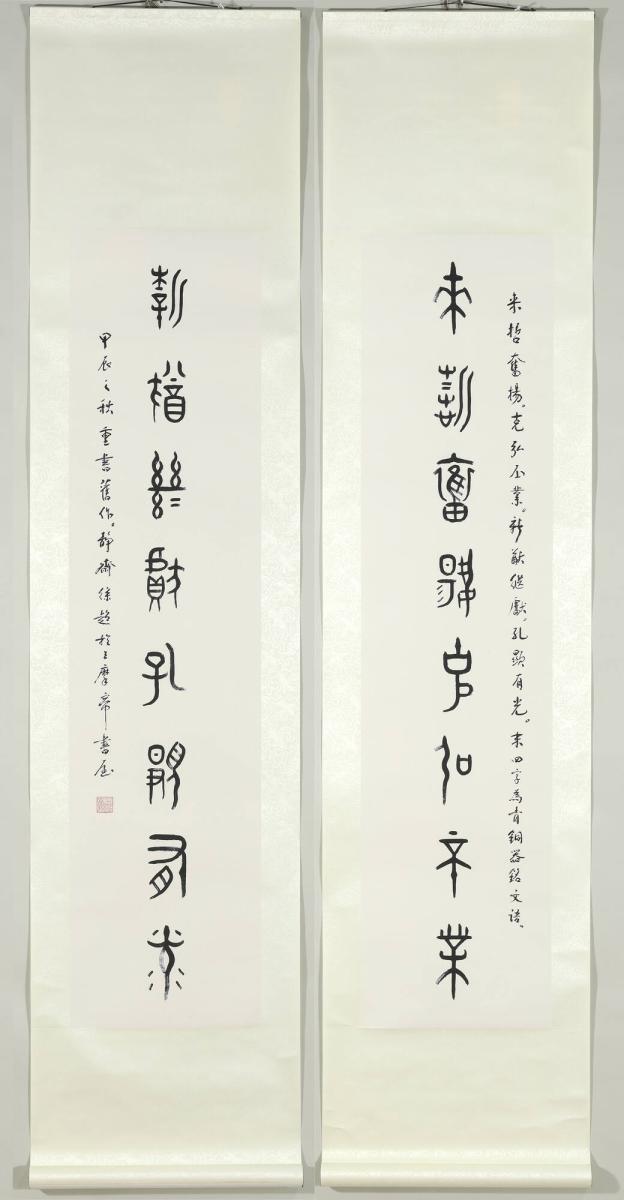 来哲奮揚。克弘丕業。新猷継獻。孔顯有光。末四字為青銅器銘文語。
来哲奮揚克弘丕業
新猷繼獻孔顯有光
甲辰之秋重書舊作。靜齋徐超於三摩帝書屋